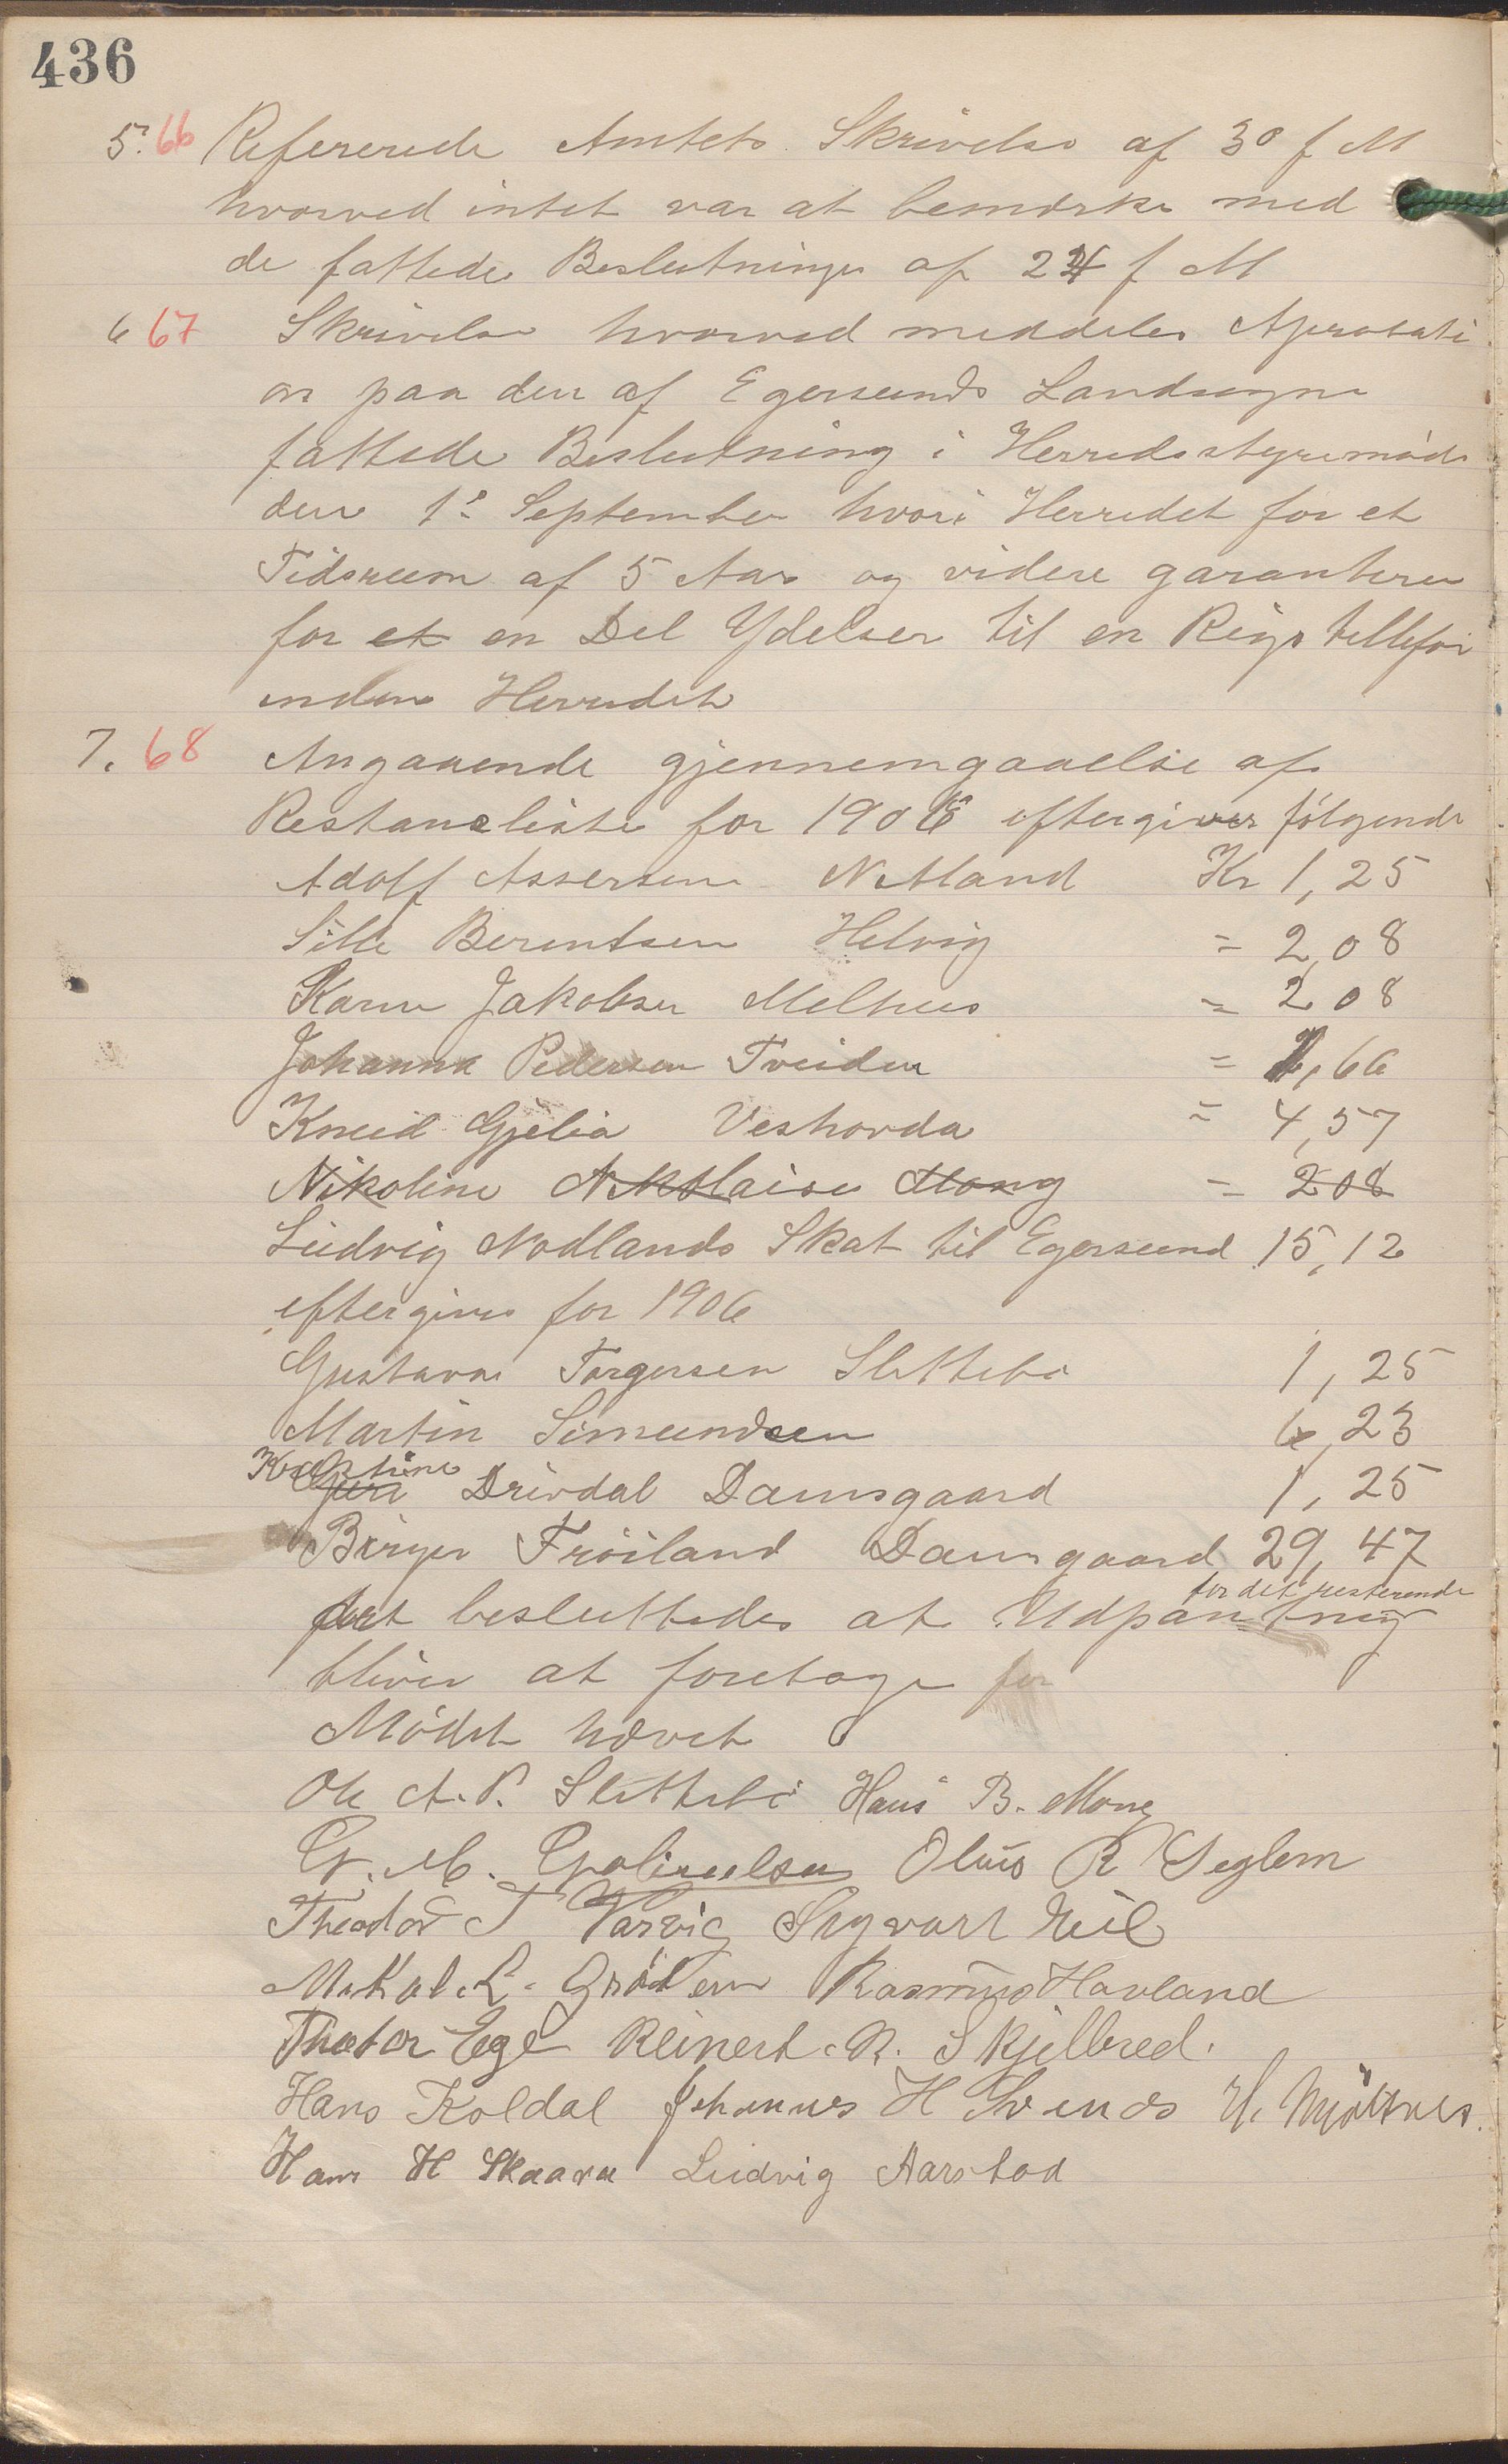 436
5. 66 Refererede Amtets Skrivelse af 30 f M
hvorved intet var at bemærke med
de fattede Beslutninger af 24 f M
6 67 Skrivelse hvorved meddeles Aprobati
on paa den af Egersunds Landsogn
fattede Beslutning i Herredsstyremøde
den 1ste September hvori Herredet for et
Tidsrum af 5 Aar og videre garanterer
for et en Del Ydelser til en Rigstellefon
inden Herredet
7. 68 Angaaende gjennemgaaelse af
Restanceliste for 1906 eftergives følgende
Adolf Assersen Netland Kr 1,25
Sille Berentsen Helvig = 2,08
Karen Jakobsen Melhus = 2 08
Johanna Pedersen Tveiden = 1,66
Knud Gjelia Veshovda = 4,57
Nikoline Nikolaisen Mong = 208
Ludvig Nodlands Skat til Egersund 15,12
eftergives for 1906
Gustava Torgersen Slettebø 1,25
Martin Simundsen 6,23
Kristine
Drivdal Damsgaard 1,25
Birger Frøiland Damsgaard 29,47
for det resterende
det besluttedes at Udpantning
bliver at foretage for
Mødet hævet
Ole A. P. Slettebø Hans B. Mong
G. M. Olaus R Seglem
Theodor T Varvig Sigvart Eie
Mikal. L. Grødem Rasmus Havland
Theodor Ege Reinert. R. Skjelbred.
Hans Koldal Johannes H Svends H. Mjølsnes.
Hans H Skaara Ludvig Aarstad